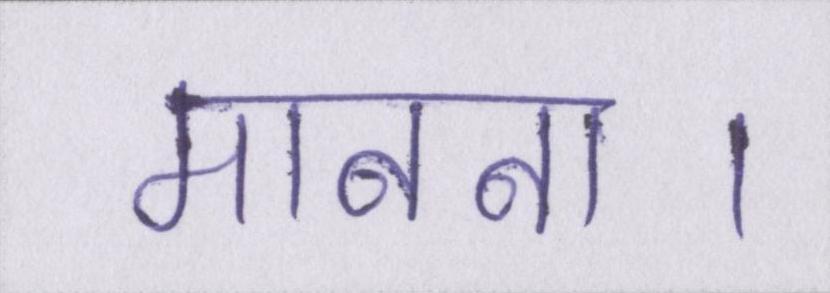 मानना ।